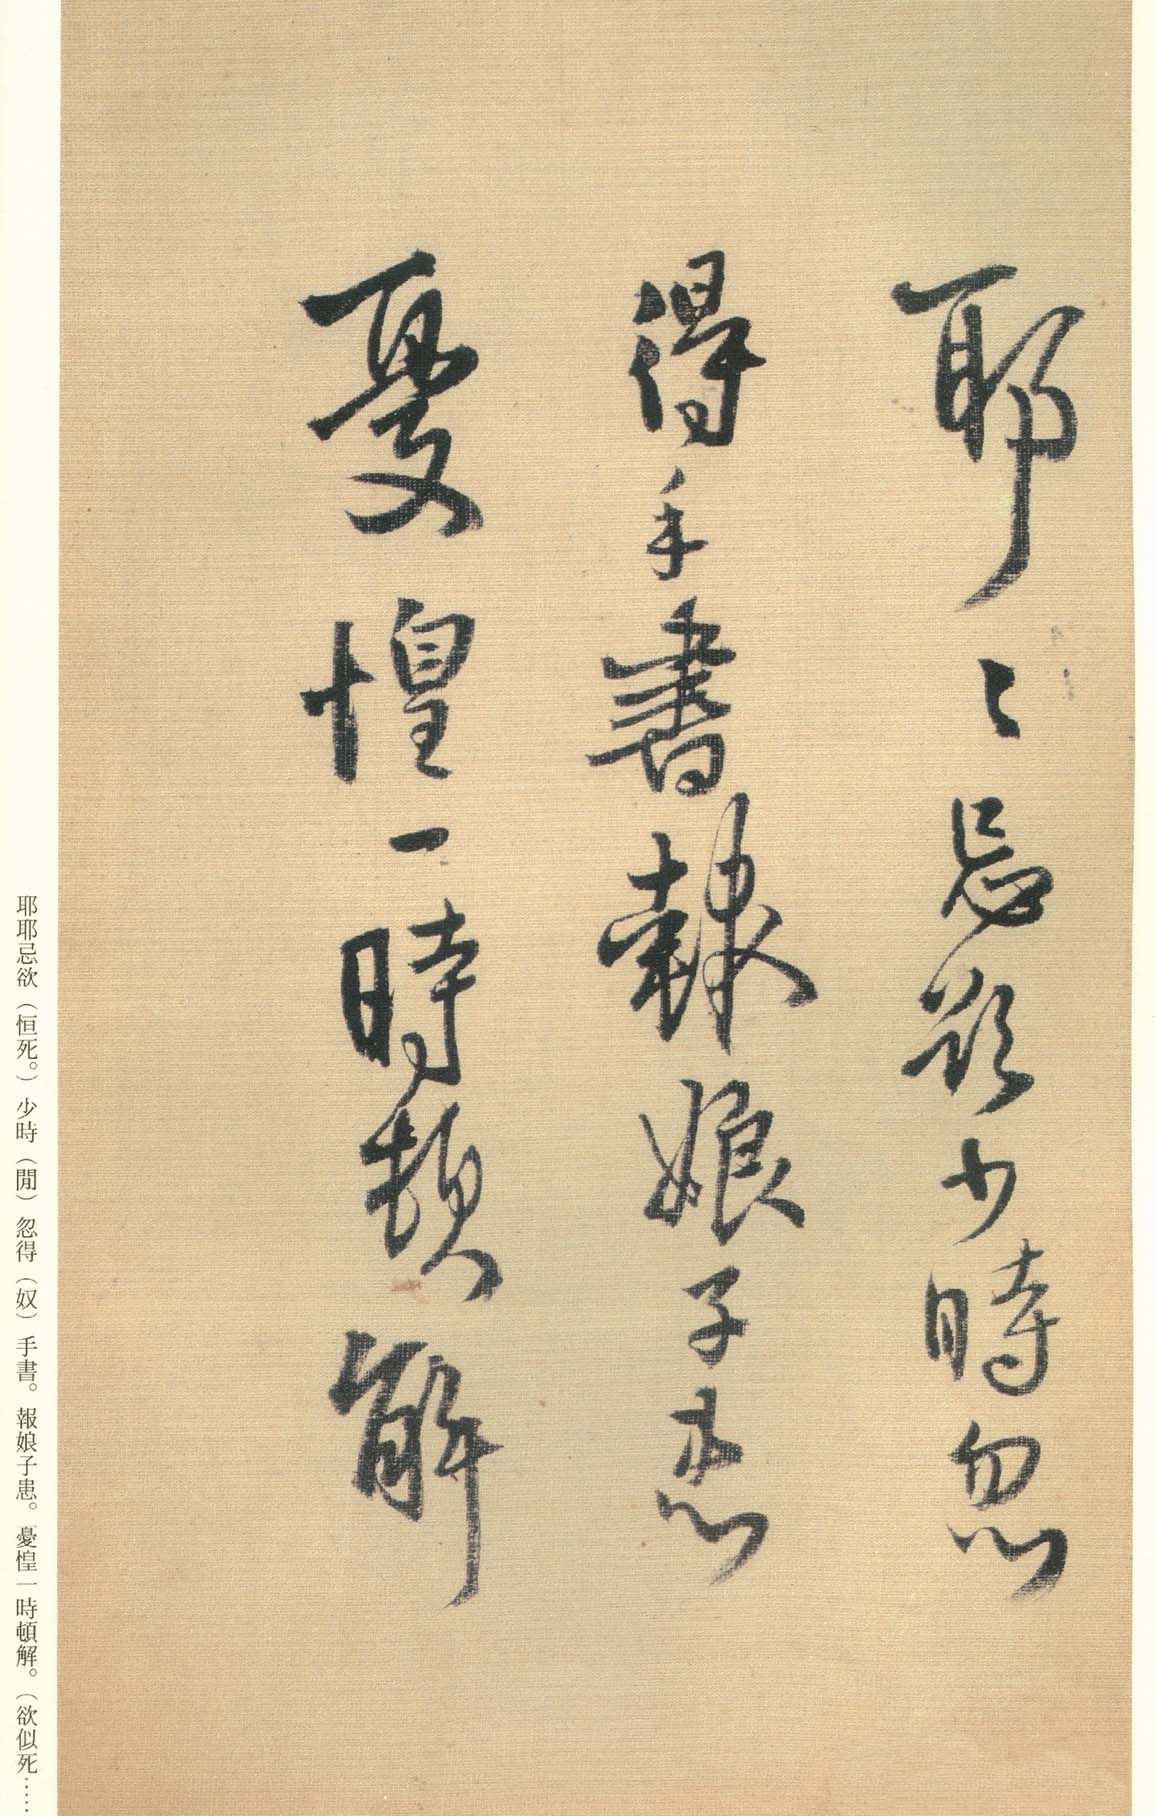 耶〻忌欲少時忽
得手書報娘子患
憂惶一時頓解
耶耶忌欲（恒死。）少時（閒）忽得（奴）手書。報娘子患。憂惶一時頓解。（欲似死……